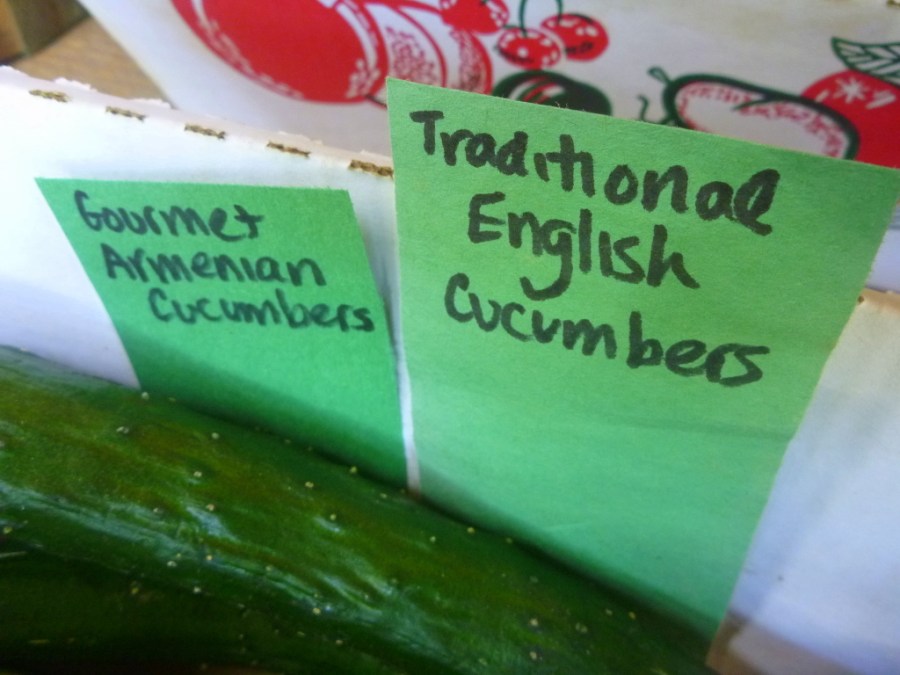 Gourmet
Armenian
Cucumbers
Traditional
English
Cucumbers